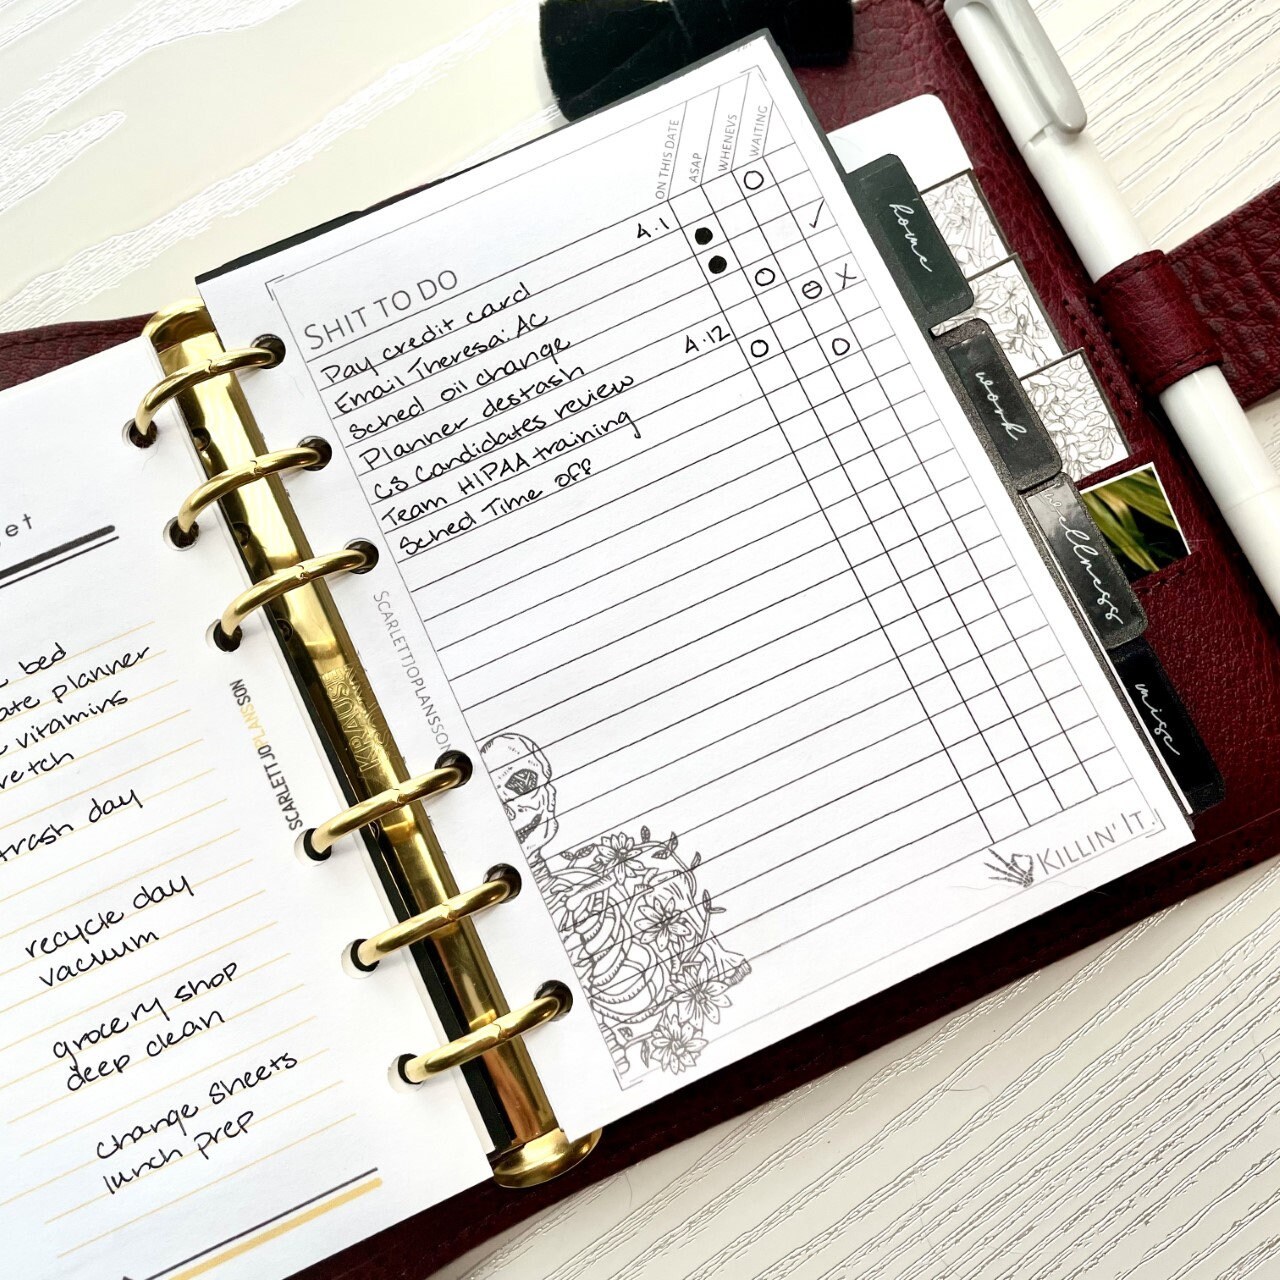 et
bed
ate planner
vitamins
retch
trash day
recycle day
vacuum
grocery shop
deep clean
change sheets
lunch prep
SCARLETTJOPLANSSON
KRAUSE
SCARLETTJOPLANSSON
SHIT TO DO
ON THIS DATE
ASAP
WHENEVS
WAITING
Pay credit card 4.1
Email Theresa: AC
Sched oil change
Planner destash
CS Candidates review 4.12
Team HIPAA training
Sched Time off
KILLIN' IT.
home
work
wellness
misc